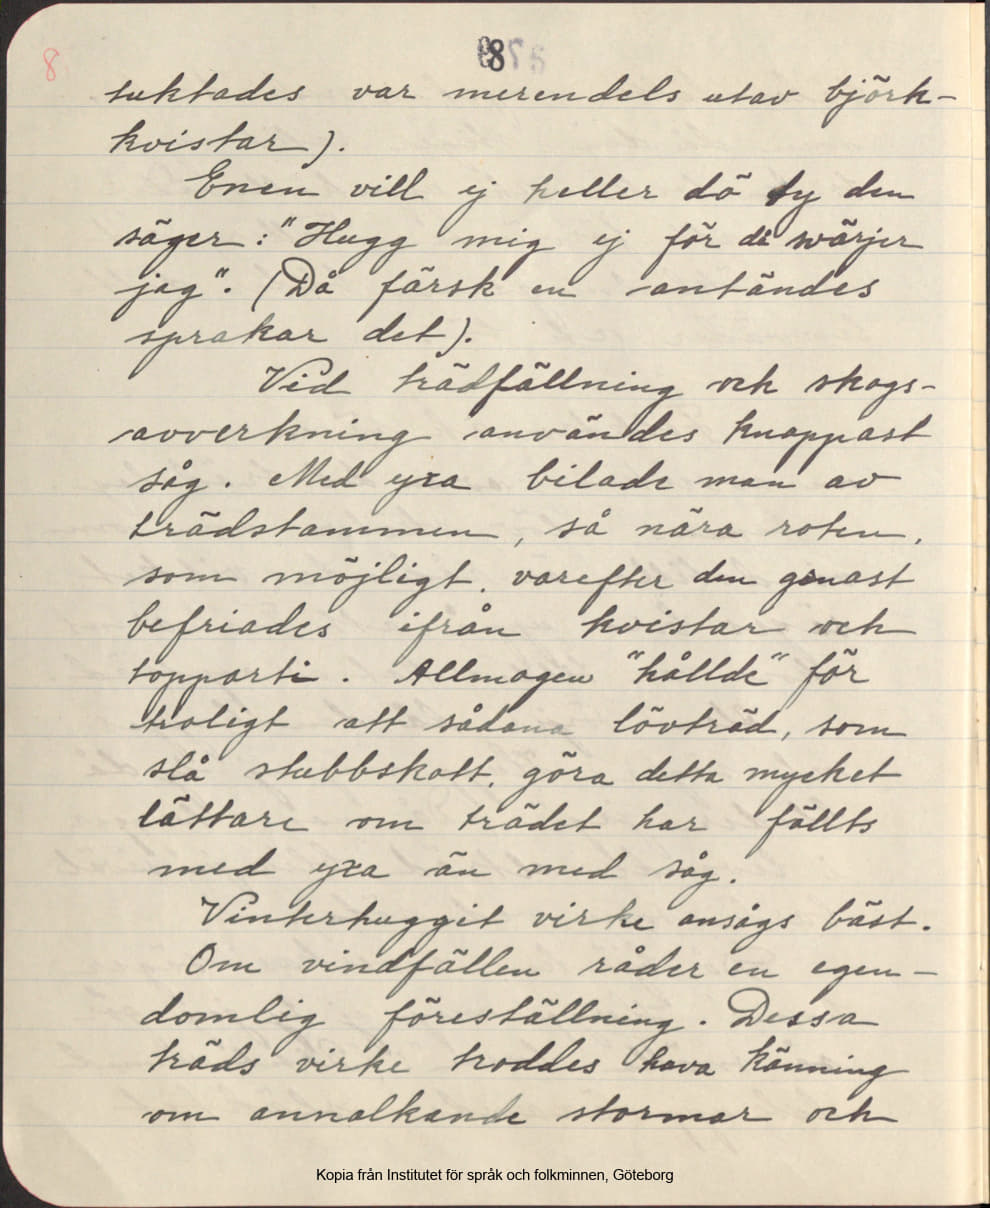 8
8
tuktades var merendels utav björk-
kvistar).
Enen vill ej heller dö ty den
säger: "Hugg mig ej för di svärjer
jag". (Då färsk en antändes
sprakar det).
Vid trädfällning och skogs-
avverkning användes knappast
såg. Med yxa bilade man av
trädstammen, så nära roten,
som möjligt, varefter den genast
befriades ifrån kvistar och
topparti. Allmogen "hållde" för
troligt att sådana lövträd, som
slå stubbskott, göra detta mycket
lättare om trädet har fällts
med yxa än med såg.
Vinterhuggit virke ansågs bäst.
Om vindfällen råder en egen-
domlig föreställning. Dessa
träds virke troddes hava känning
om annalkande stormar och
Kopia från Institutet för språk och folkminnen, Göteborg